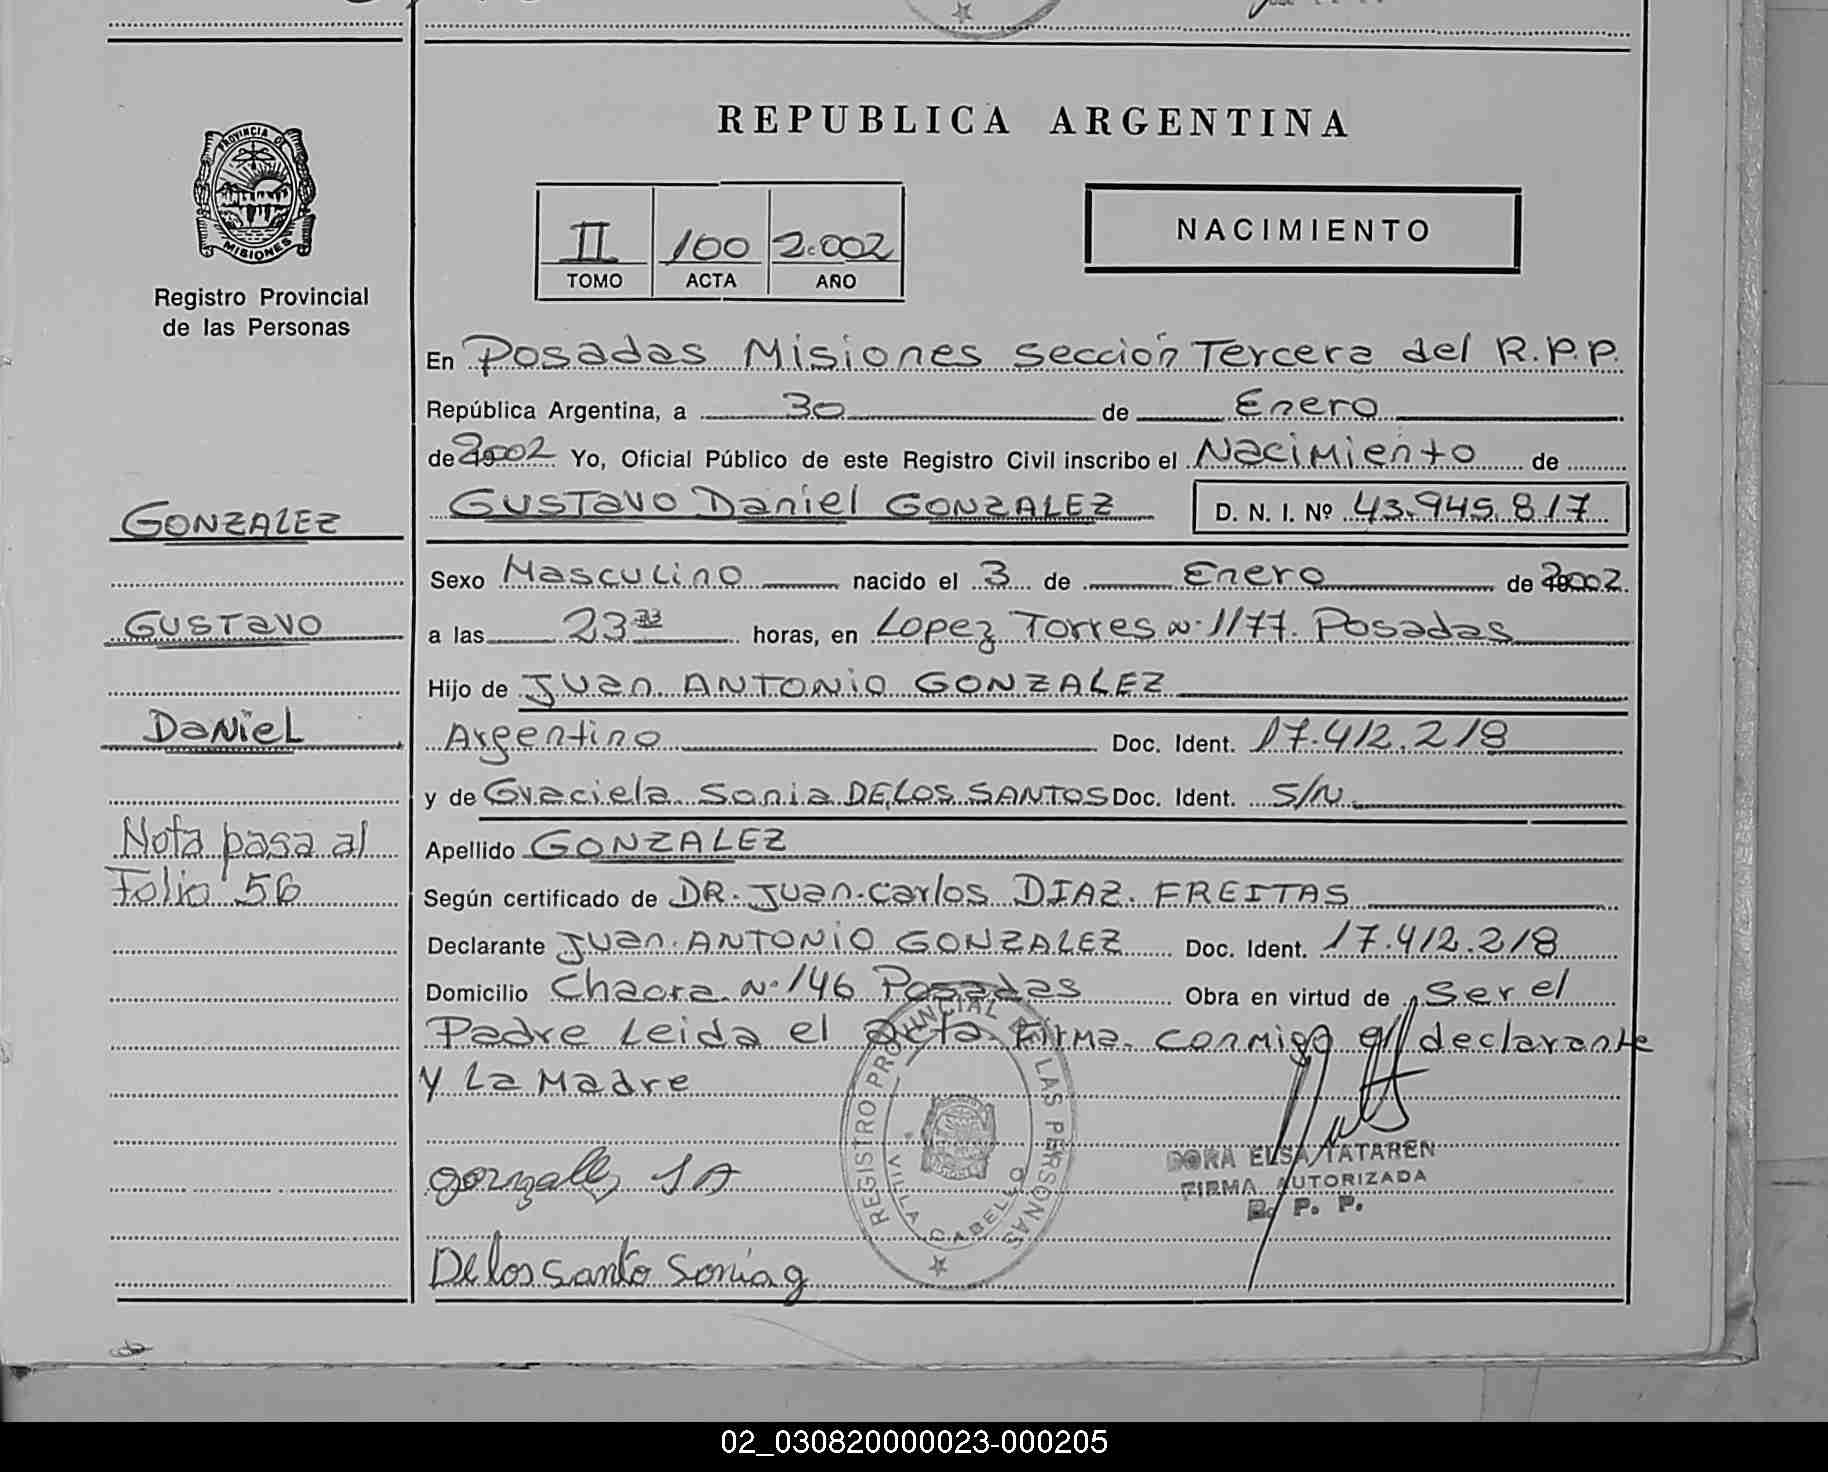 PROVINCIA DE
MISIONES
Registro Provincial
de las Personas
REPUBLICA ARGENTINA
II 100 2.002
TOMO ACTA AÑO
NACIMIENTO
En Posadas Misiones sección Tercera del R.P.P.
República Argentina, a 30 de Enero
de 2002 Yo, Oficial Público de este Registro Civil inscribo el Nacimiento de
GUSTavo Daniel GONZALEZ D. N. I. Nº 43.945.817
Sexo Masculino nacido el 3 de Enero de 2002.
a las 23 horas, en Lopez Torres Nº 1177. Posadas
Hijo de Juan ANTONIO GONZALEZ
Argentino Doc. Ident. 17.412.218
y de Graciela Sonia DE LOS SANTOS Doc. Ident. S/N.
Apellido GONZALEZ
Según certificado de DR. Juan Carlos DIAZ FREITAS
Declarante Juan ANTONIO GONZALEZ Doc. Ident. 17.412.218
Domicilio Chacra Nº 146 Posadas Obra en virtud de ser el
Padre Leida el acta Firma conmigo el declarante
y La Madre
GONZALEZ
GUSTavo
DaNieL
Nota pasa al
Folio 56
REGISTRO PROVINCIAL LAS PERSONAS
VILLA CABELLO
DORA ELSA TATAREN
FIRMA AUTORIZADA
R. P. P.
gonzalez J A
De los Santo Sonia g
02_030820000023-000205